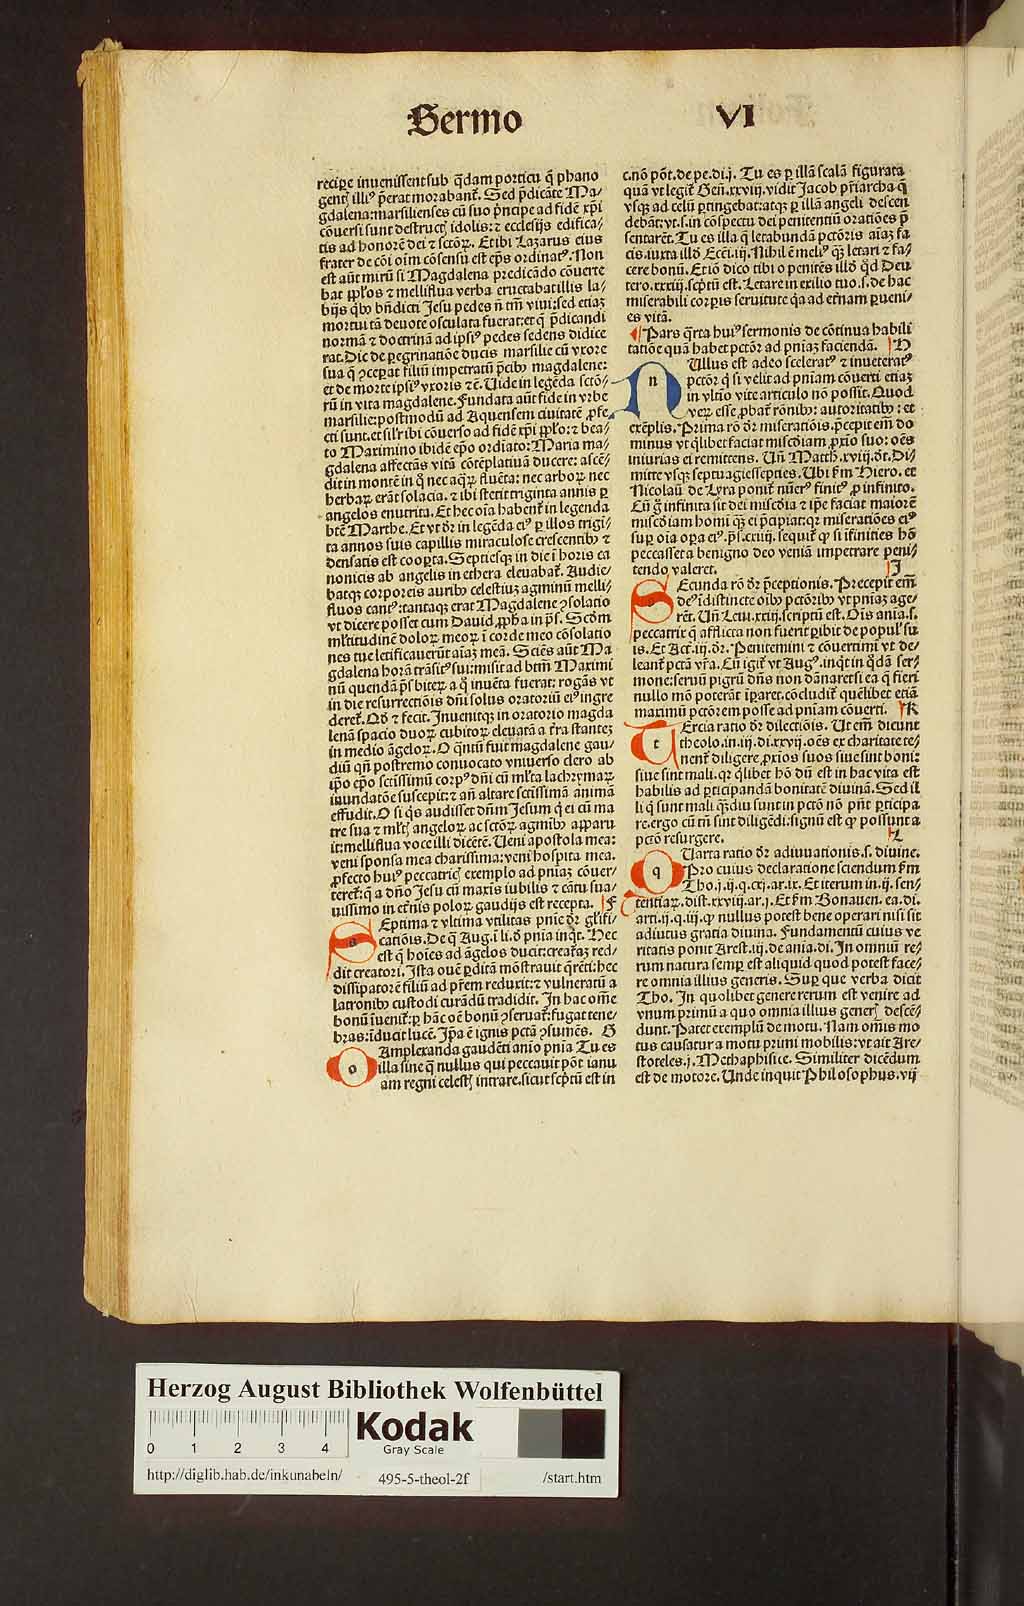 Sermo VI
recipe inuenissent sub q̄dam porticu q̄ phano
gentꝭ illiꝰ p̄erat morabant̄. Sed p̄dicāte Ma/
gdalena: marsilienses cū suo p̄ncipe ad fidē xp̄i
cōuersi sunt destructꝭ idolis: ⁊ ecclesijs edifica/
tis ad honorē dei ⁊ sctōꝝ. Et ibi Lazarus eius
frater de cōi oīm cōsensū est ep̄s ordinatꝰ. Non
est aūt mirū si Magdalena predicādo cōuerte
bat pp̄los ⁊ melliflua verba eructabat illis la/
bijs qͥbꝰ bn̄dicti Jesu pedes n̄ tm̄ viui: sed etiaꝫ
mortui tā deuote osculata fuerat: et q̄ p̄dicandi
normā ⁊ doctrinā ad ipsiꝰ pedes sedens didice
rat. Dic de ꝑegrinatiōe ducis marsilie cū vxore
sua q̄ ꝯceperat filiū impetratū p̄cibꝰ magdalene:
et de morte ipsiꝰ vxoris ⁊ē. Uide in legēda sctō/
rū in vita magdalene. Fundata aūt fide in vrbe
marsilie: postmodū ad Aquensem ciuitatē ꝓfe/
cti sunt. et sil̄r ibi cōuerso ad fidē xp̄i pp̄lo: ⁊ bea/
to Maximino ibidē ep̄o ordiato: Maria ma/
gdalena affectās vitā cōtēplatiuā ducere: ascē/
dit in montē in q̄ nec aqͣꝝ fluēta: nec arboꝝ nec
herbaꝝ erāt solacia. ⁊ ibi stetit triginta annis ꝑ
angelos enutrita. Et hec oīa habent̄ in legenda
btē Marthe. Et vt dr̄ in legēda eiꝰ ꝑ illos trigī/
ta annos suis capillis miraculose crescentibꝰ ⁊
densatis est cooꝑta. Septiesqꝫ in die ī horis ca
nonicis ab angelis in ethera eleuabat̄. Audie/
batqꝫ corporeis auribꝰ celestiuꝫ agminū melli/
fluos cantꝰ: tantaqꝫ erat Magdalene ꝯsolatio
vt dicere posset cum Dauid ꝓpha in ps̄. Scd̄m
ml̄titudinē doloꝝ meoꝝ ī corde meo cōsolatio
nes tue letificauerūt aīaꝫ meā. Sciēs aūt Ma
gdalena horā trāsitꝰ sui: misit ad btm̄ Maximi
nū quendā p̄sbiteꝝ a q̄ inuēta fuerat: rogās vt
in die resurrectiōis dn̄i solus oratoriū eiꝰ ingre
deret̄. Qd̄ ⁊ fecit. Inuenitqꝫ in oratorio magda
lenā spacio duoꝝ cubitoꝝ eleuatā a tr̄a stantez
in medio āgeloꝝ. O qͣntū fuit magdalene gau/
diū qn̄ postremo conuocato vniuerso clero ab
ip̄o ep̄o sctissimū corpꝰ dn̄i cū ml̄ta lachrymaꝝ
inundatōe suscepit: ⁊ an̄ altare sctissimā animā
effudit. O si qͥs audisset dn̄m Jesum q̄ ei cū ma
tre sua ⁊ ml̄tꝭ angeloꝝ ac sctōꝝ agmībꝰ apparu
it: melliflua voce illi dicētē. Ueni apostola mea:
veni sponsa mea charissima: veni hospita mea.
ꝓfecto huiꝰ peccatricꝭ exemplo ad pniaꝫ cōuer/
teret̄: q̄ a dn̄o Jesu cū maxis iubilis ⁊ cātu sua/
uissimo in ct̄nis poloꝝ gaudijs est recepta. F
SEptima ⁊ vltima vtilitas pnīe dr̄ gl̄ifi/
catiōis. De q̄ Aug. ī li. d̄ pnīa inqͥt. Hec
est q̄ hoīes ad āgelos ducit: creaťaꝫ red/
dit creatori. Ista ouē ꝑditā mōstrauit q̄rēti: hec
dissipatorē filiū ad pr̄em reduxit: ⁊ vulneratū a
latronibꝰ custodi curādū tradidit. In hac om̄e
bonū īuenit̄: ꝑ hāc oē bonū ꝯseruat̄: fugat tene/
bras: īducit lucē. Ip̄a ē ignis pctā ꝯsumēs. G
O Amplexanda gaudēti anīo pnīa Tu es
illa sine q̄ nullus qui peccauit pōt ianu
am regni celestꝭ intrare. sicut scp̄tū est in
c. nō pōt. de pe. di. j. Tu es ꝑ illā scalā figurata
quā vt legit̄ Gen̄. xxviij. vidit Jacob pr̄iarcha q̄
vsqꝫ ad celū ꝑtingebat: atqꝫ ꝑ illā angeli descen
debāt: vt. s. in cōspectu dei penitentiū oratiōes p̄
sentarēt. Tu es illa q̄ letabundā pctōris aīaꝫ fa
cis. iuxta illd̄ Ecci. iij. Nihil ē meliꝰ qͣꝫ letari ⁊ fa/
cere bonū. Et iō dico tibi o penitēs illd̄ qd̄ Deu
tero. xxxiij. scp̄tū est. Letare in exilio tuo. s. de hac
miserabili corpis seruitute qͥa ad et̄nam ꝑueni/
es vitā.
Pars q̄rta huiꝰ sermonis de cōtinua habili
tatiōe quā habet pctōr ad pniaꝫ faciendā. H
NUllus est adeo sceleratꝰ ⁊ inueteratꝰ
pctōr qͥ si velit ad pniam cōuerti etiaꝫ
in vltīo vite articulo nō possit. Quod
veꝝ esse ꝓbat̄ rōnibꝰ: autoritatibꝰ: et
exēplis. Prima rō dr̄ miseratiōis. p̄cepit em̄ do
minus vt qͥlibet faciat misc̄diam ꝓxīo suo: oēs
iniurias ei remittens. Un̄ Matth. xviij. dr̄. Di/
mitte vsqꝫ septuagies septies. Ubi ẜm Hiero. et
Nicolaū de Lyra ponit̄ nūerꝰ finitꝰ ꝓ infinito.
Cū g̊ infinita sit dei misc̄dia ⁊ ip̄e faciat maiorē
misc̄diam homī qͣꝫ ei p̄cipiat: qꝛ miseratiōes eiꝰ
suꝑ oīa oꝑa eiꝰ. ps̄. cxliiij. sequit̄ ꝙ si īfinities hō
peccasset a benigno deo veniā impetrare peni/
tendo valeret. J
SEcunda rō dr̄ p̄ceptionis. Precepit em̄
deꝰ īdistincte oībꝰ pctōribꝰ vt pniaꝫ age/
rēt. Un̄ Leui. xxiij. scriptū est. Oīs anīa. s.
peccatrix q̄ afflicta non fuerit ꝑibit de populꝰ su
is. Et Act. iij. dr̄. Penitemini ⁊ cōuertimī vt de/
leant̄ pctā vr̄a. Cū igit̄ vt Augꝰ. inqͥt in qͦdā ser/
mone: seruū pigrū dn̄s non dānaret si ea q̄ fieri
nullo mō poterāt īparet. cōcludit̄ quēlibet etiā
maximū pctōrem posse ad pniam cōuerti. K
TErcia ratio dr̄ dilectiōis. Ut em̄ dicunt
theolo. in. iij. di. xxvij. oēs ex charitate te/
nent̄ diligere ꝓxīos suos siue sint boni:
siue sint mali. qꝛ qͥlibet hō dū est in hac vita est
habilis ad ꝑticipandā bonitatē diuinā. Sed il
li qͥ sunt mali qͣꝫdiu sunt in pctō nō pn̄t ꝑticipa
re. ergo cū tn̄ sint diligēdi: signū est ꝙ possunt a
pctō resurgere. L
QUarta ratio dr̄ adiuuationis. s. diuine.
Pro cuius declaratione sciendum ẜm
Tho. j. ij. q. cxj. ar. ix. Et iterum in. ij. sen/
tentiaꝝ. dist. xxviij. ar. j. Et ẜm Bonauen. ea. di.
arti. ij. q. iij. ꝙ nullus potest bene operari nisi sit
adiutus gratia diuina. Fundamentū cuius ve
ritatis ponit Arest. iij. de ania. di. In omniū re/
rum natura semꝑ est aliquid quod potest face/
re omnia illius generis. Suꝑ que verba dicit
Tho. In quolibet genere rerum est venire ad
vnum primū a quo omnia illius generꝭ descē/
dunt. Patet exemplū de motu. Nam om̄is mo
tus causatur a motu primi mobilis: vt ait Are/
stoteles. j. Methaphisice. Similiter dicēdum
est de motore. Unde inquit Philosophus. vij
Herzog August Bibliothek Wolfenbüttel
0 1 2 3 4
Kodak
Gray Scale
http://diglib.hab.de/inkunabeln/ 495-5-theol-2f /start.htm